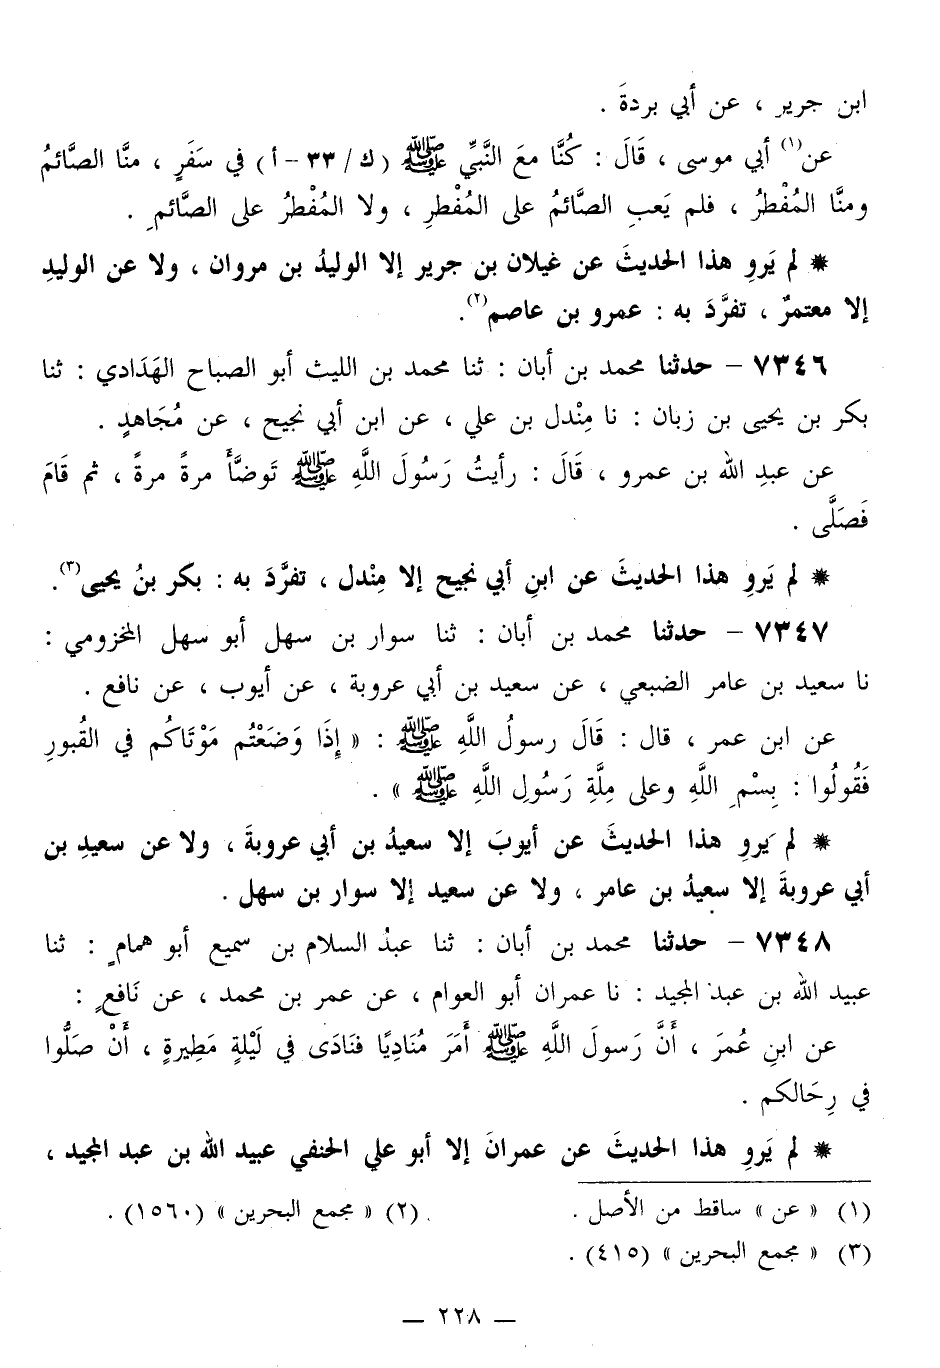 ابن جرير ، عن أبي بردةَ .
عن(١) أبي موسى ، قَالَ : كُنَّا معَ النَّبيِّ ﷺ (ك / ٣٣ - أ) في سَفَرٍ ، منَّا الصَّائمُ
ومنَّا المُفْطرُ ، فلم يَعبِ الصَّائمُ على المُفْطرِ ، ولا المُفْطرُ على الصَّائمِ .
* لم يَروِ هذا الحديثَ عن غيلان بن جرير إلا الوليدُ بن مروان ، ولا عن الوليدِ
إلا معتمرٌ ، تفرَّدَ به : عمرو بن عاصم(٢).
٧٣٤٦ - حدثنا محمد بن أبان : ثنا محمد بن الليث أبو الصباح الهَدَادي : ثنا
بكر بن يحيى بن زبان : نا مِنْدل بن علي ، عن ابن أبي نجيح ، عن مُجَاهدٍ .
عن عبدِ الله بن عمرو ، قَالَ : رأيتُ رَسُولَ اللَّهِ ﷺ تَوضَّأَ مرةً مرةً ، ثم قَامَ
فَصَلَّى .
* لم يَروِ هذا الحديثَ عن ابنِ أبي نجيح إلا مِنْدل ، تفرَّدَ به : بكر بنُ يحيى(٣).
٧٣٤٧ - حدثنا محمد بن أبان : ثنا سوار بن سهل أبو سهل المخزومي :
نا سعيد بن عامر الضبعي ، عن سعيد بن أبي عروبة ، عن أيوب ، عن نافع .
عن ابن عمر ، قال : قَالَ رسولُ اللَّهِ ﷺ : « إِذَا وَضَعْتُم مَوْتَاكُم في القُبورِ
فَقُولُوا : بِسْمِ اللَّهِ وعلى مِلَّةِ رَسُولِ اللَّهِ ﷺ » .
* لم يَروِ هذا الحديثَ عن أيوبَ إلا سعيدُ بن أبي عروبةَ ، ولا عن سعيدِ بن
أبي عروبةَ إلا سعيدُ بن عامر ، ولا عن سعيد إلا سوار بن سهل .
٧٣٤٨ - حدثنا محمد بن أبان : ثنا عبدُ السلام بن سميع أبو همامٍ : ثنا
عبيد الله بن عبد المجيد : نا عمران أبو العوام ، عن عمر بن محمد ، عن نَافعٍ :
عن ابنِ عُمرَ ، أَنَّ رَسولَ اللَّهِ ﷺ أَمَرَ مُنَاديًا فنَادَى في لَيْلةٍ مَطِيرةٍ ، أَنْ صَلُّوا
في رِحَالكم .
* لم يَروِ هذا الحديثَ عن عمرانَ إلا أبو علي الحنفي عبيد الله بن عبد المجيد ،
(١) « عن » ساقط من الأصل . (٢) « مجمع البحرين » (١٥٦٠) .
(٣) « مجمع البحرين » (٤١٥) .
— ٢٢٨ —